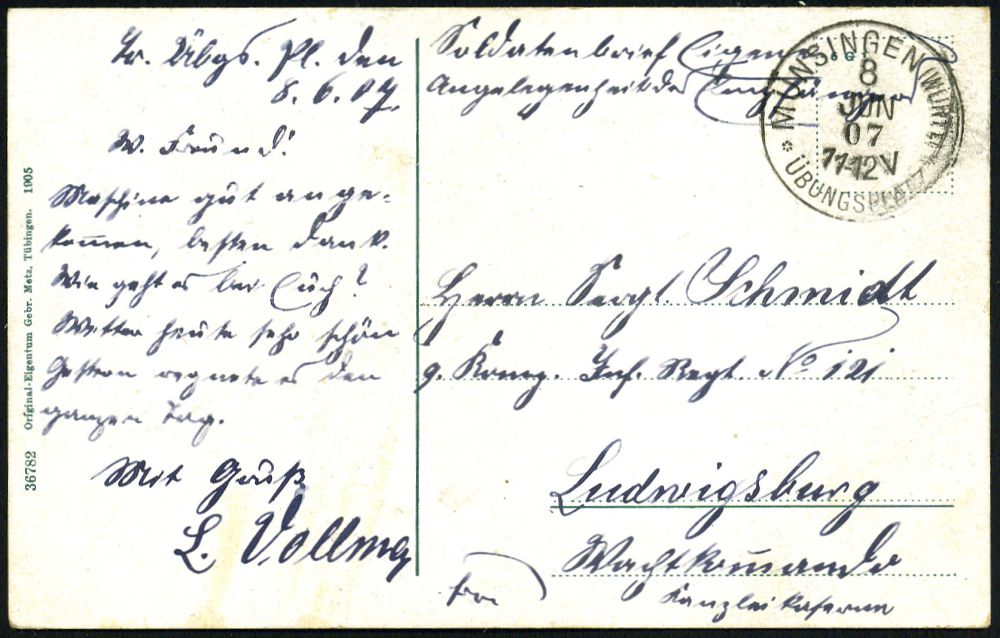 Tr. Übgs. Pl. den
8.6.07.
W. Freund!
Maschine gut ange-
kommen, besten Dank.
Wie geht es bei Euch?
Wetter heute sehr schön
Gestern regnete es den
ganzen Tag.
Mit Gruß
L. Vollmer
Soldatenbrief Eigene
Angelegenheit des Empfängers
MÜNSINGEN (WÜRTT.)
8
JUN
07
11-12V
* ÜBUNGSPLATZ
Herrn Sergt. Schmidt
9. Komp. Inf. Regt. No 121
Ludwigsburg
Wachtkommando
Kanzleikaserne
36782 Original-Eigentum Gebr. Metz, Tübingen. 1905